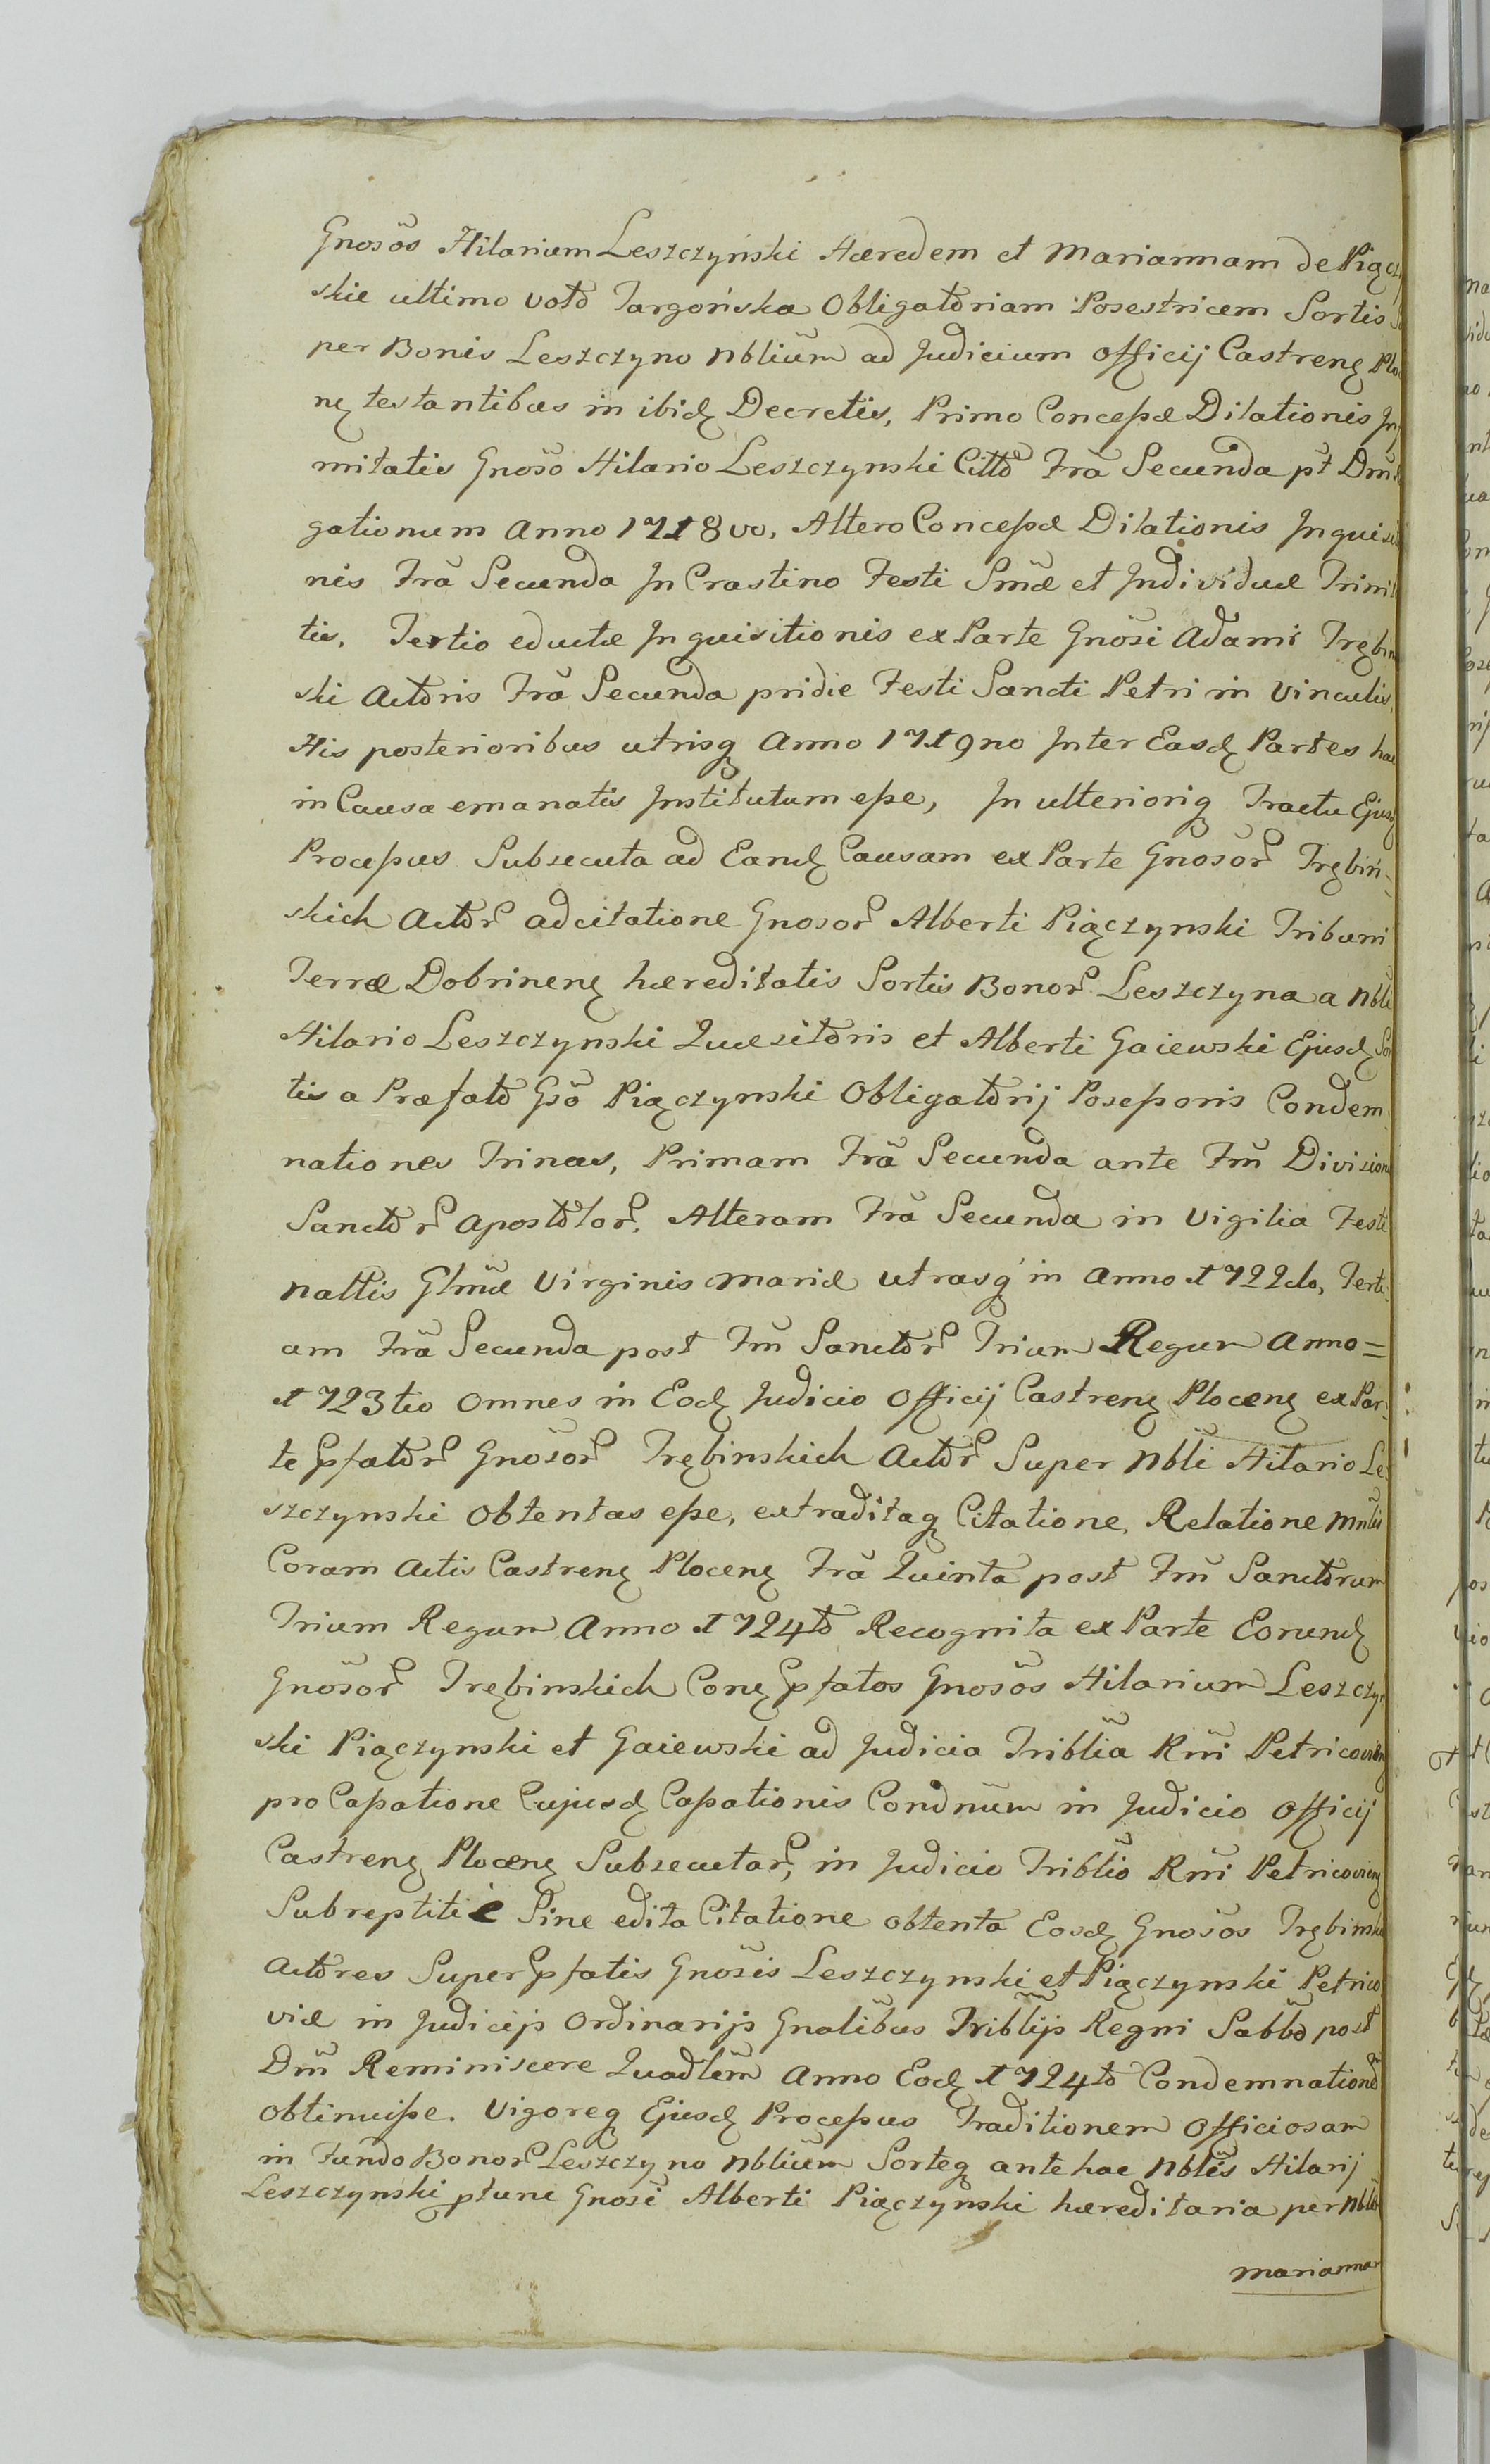 Gnosôs Hilarium Leszczyński Hæredem et Mariannam de Piącz
skie ultimo voto Targońska Obligatoriam Posestricem Sortis
per Bonis Leszczyno Nbliūm ad Judicium Officij Castrenȝ Plo
nȝ testantibus in ibidȝ Decretis, Primo Concessæ Dilationis
mitatis Gnoso Hilario Leszczynski Citto Fra Secunda pt Dm̃
gationum Anno 1718vo, Altero Concessæ Dilationis Inquisi
nis Fra Secunda In Crastino Festi Smæ et Individuæ Trini
tis, Tertio eductæ Inquisitionis ex Parte Gnosi Adami Trębin
ski Actoris Fra Secunda pridie Festi Sancti Petri in Vinculis,
His posterioribus utrisq Anno 1719no Inter Easdȝ Partes hac
in Causa emanatis Institutum esse, In ulterioriq Tractu Ejusdȝ
Processus Subsecuta ad Eandȝ Causam ex Parte Gnosor Trębiń-
skich Actor adcitatione Gnosor Alberti Piączynski Tribuni
Terræ Dobrinenȝ hæreditatis Sortis Bonor Leszczyna a Nbli
Hilario Leszczynski Quæsitoris et Alberti Gaiewski Ejusdȝ Sor
tis a Præfato Gso Piączynski Obligatorij Possessoris Condem
nationes Trinas, Primam Fra Secunda ante Fm̃ Division
Sanctor Apostolor. Alteram Fra Secunda in Vigilia Festi
Nattis Glmæ Virginis Mariæ utrasq in Anno 1722do, Terti
am Fra Secunda post Fm̃ Sanctor Trium Regum Anno =
1723tio Omnes in Eodȝ Judicio Officij Castrenȝ Plocenȝ ex Par-
te Pfator Gnosor Trębinskich Actor Super Nbli Hilario Le
szczynski Obtentas esse, extraditaq Citatione, Relatione Mnlis
Coram Actis Castrenȝ Plocenȝ Fra Quinta post Fm̃ Sanctorum
Trium Regum Anno 1724to Recognita ex Parte Eorundȝ
Gnosor Trębinskich Conȝ Pfatos Gnosôs Hilarium Leszczyn
ski Piączynski et Gaiewski ad Judicia Triblia Rni Petricovien
pro Cassatione Cujusdȝ Cassationis Condnum in Judicio Officij
Castrenȝ Plocenȝ Subsecutar, in Judicio Triblio Rni Petricovienȝ
Subreptitiè Sine edita Citatione obtenta Eosdȝ Gnosos Trębinskie
Actores Super Pfatis Gnosis Leszczynski et Piączynski Petrico
viæ in Judicijs Ordinarijs Gnalibus Triblijs Regni Sabbo post
Dm̃ Reminiscere Quadlem Anno Eodȝ 1724to Condemnatione
Obtinuisse. Vigoreq Ejusdȝ Processus Traditionem Officiosam
in Fundo Bonor Leszczyno Nblium Sorteq antehac Nblis Hilarij
Leszczynski ptunc Gnosi Alberti Piączynski hæreditaria per Nblem
Mariannam